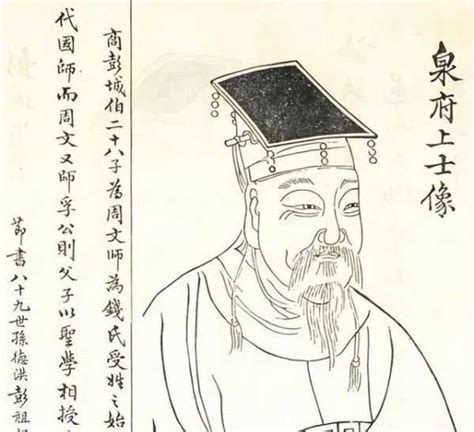 泉府上士像
商彭城伯二十八子為周文師為錢氏受姓之始
代國師而周文又師孚公則父子以聖學相授
節書八十九世孫德洪彭祖